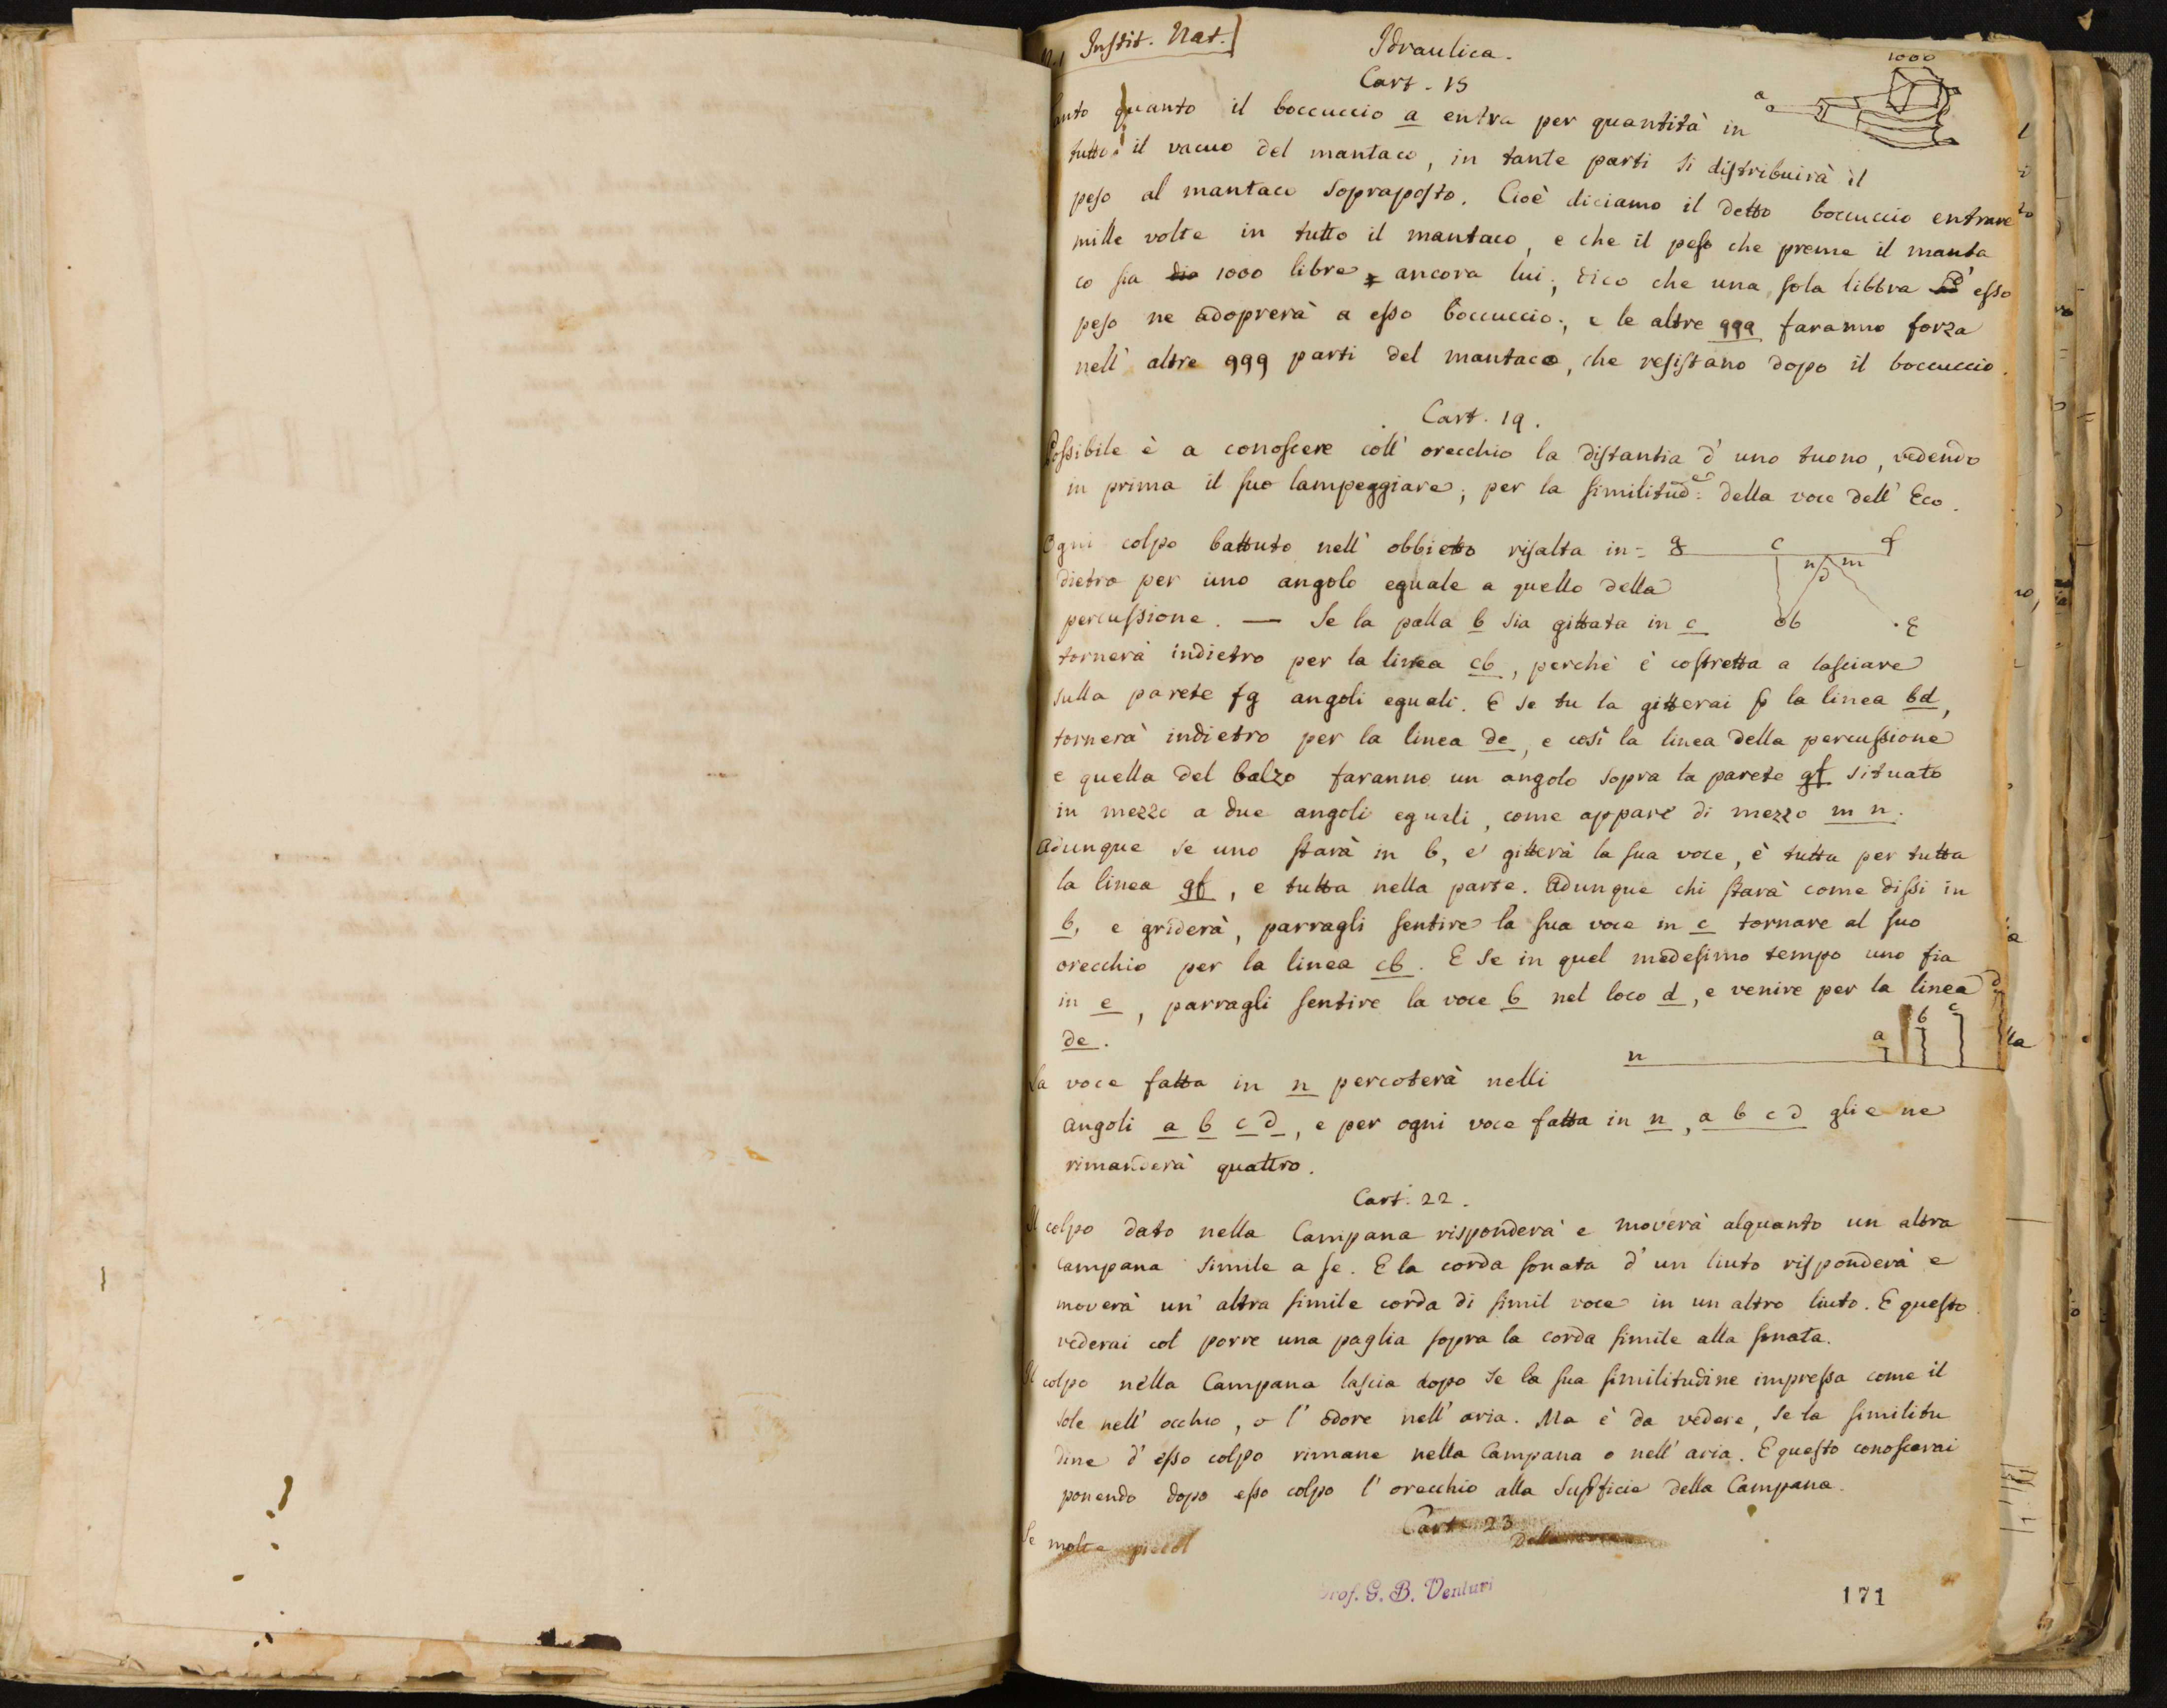 Instit. Nat.]
Idraulica.
Cart. 15
1000
a
tanto quanto il boccuccio a entra per quantità in
tutto il vacuo del mantaco, in tante parti si distribuirà il
peso al mantaco sopraposto. Cioè diciamo il detto boccuccio entrare
mille volte in tutto il mantaco, e che il peso che preme il manta
co sia 1000 libre ancora lui; dico che una sola libbra d' esso
peso ne adoprerà a esso boccuccio; e le altre 999 faranno forza
nell' altre 999 parti del mantaco, che resistano dopo il boccuccio.
Cart. 19.
Possibile è a conoscere coll' orecchio la distantia d' uno tuono, vedendo
in prima il suo lampeggiare; per la similitud:e della voce dell' Eco.
Ogni colpo battuto nell' obbietto risalta in=
g c f
n d m
dietro per uno angolo eguale a quello della
percussione. — Se la palla b sia gittata in c
b e
tornerà indietro per la linea cb, perchè è costretta a lasciare
sulla parete fg angoli eguali. E se tu la gitterai p la linea bd,
tornerà indietro per la linea de, e così la linea della percussione
e quella del balzo faranno un angolo sopra la parete gf situato
in mezzo a due angoli eguali, come appare di mezzo m n.
Adunque se uno starà in b, e gitterà la sua voce, è tutta per tutta
la linea gf, e tutta nella parte. Adunque chi starà come dissi in
b, e griderà, parragli sentire la sua voce in c tornare al suo
orecchio per la linea cb. E se in quel medesimo tempo uno fia
in e, parragli sentire la voce b nel loco d, e venire per la linea
de.
n a b c d
La voce fatta in n percoterà nelli
angoli a b c d, e per ogni voce fatta in n, a b c d glie ne
rimanderà quattro.
Cart. 22.
Il colpo dato nella Campana risponderà e moverà alquanto un altra
campana simile a se. E la corda sonata d' un liuto risponderà e
moverà un' altra simile corda di simil voce in un altro liuto. E questo
vederai col porre una paglia sopra la corda simile alla sonata.
Il colpo nella Campana lascia dopo se la sua similitudine impressa come il
sole nell' occhio, o l' odore nell' aria. Ma è da vedere, se la similitu
dine d' esso colpo rimane nella Campana o nell' aria. E questo conoscerai
ponendo dopo esso colpo l' orecchio alla Supficie della Campana.
Cart 23
Se molte piccol
Della
Prof. G. B. Venturi
171